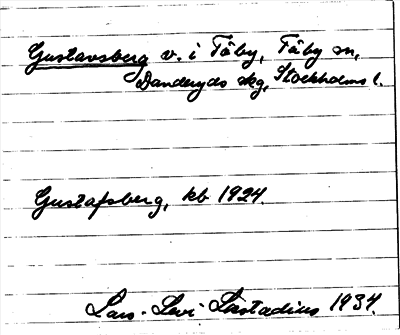 Gustavsberg v. i Täby, Täby sn,
Danderyds skg, Stockholms l.
Gustafsberg, kb 1924.
Lars-Levi Læstadius 1934.